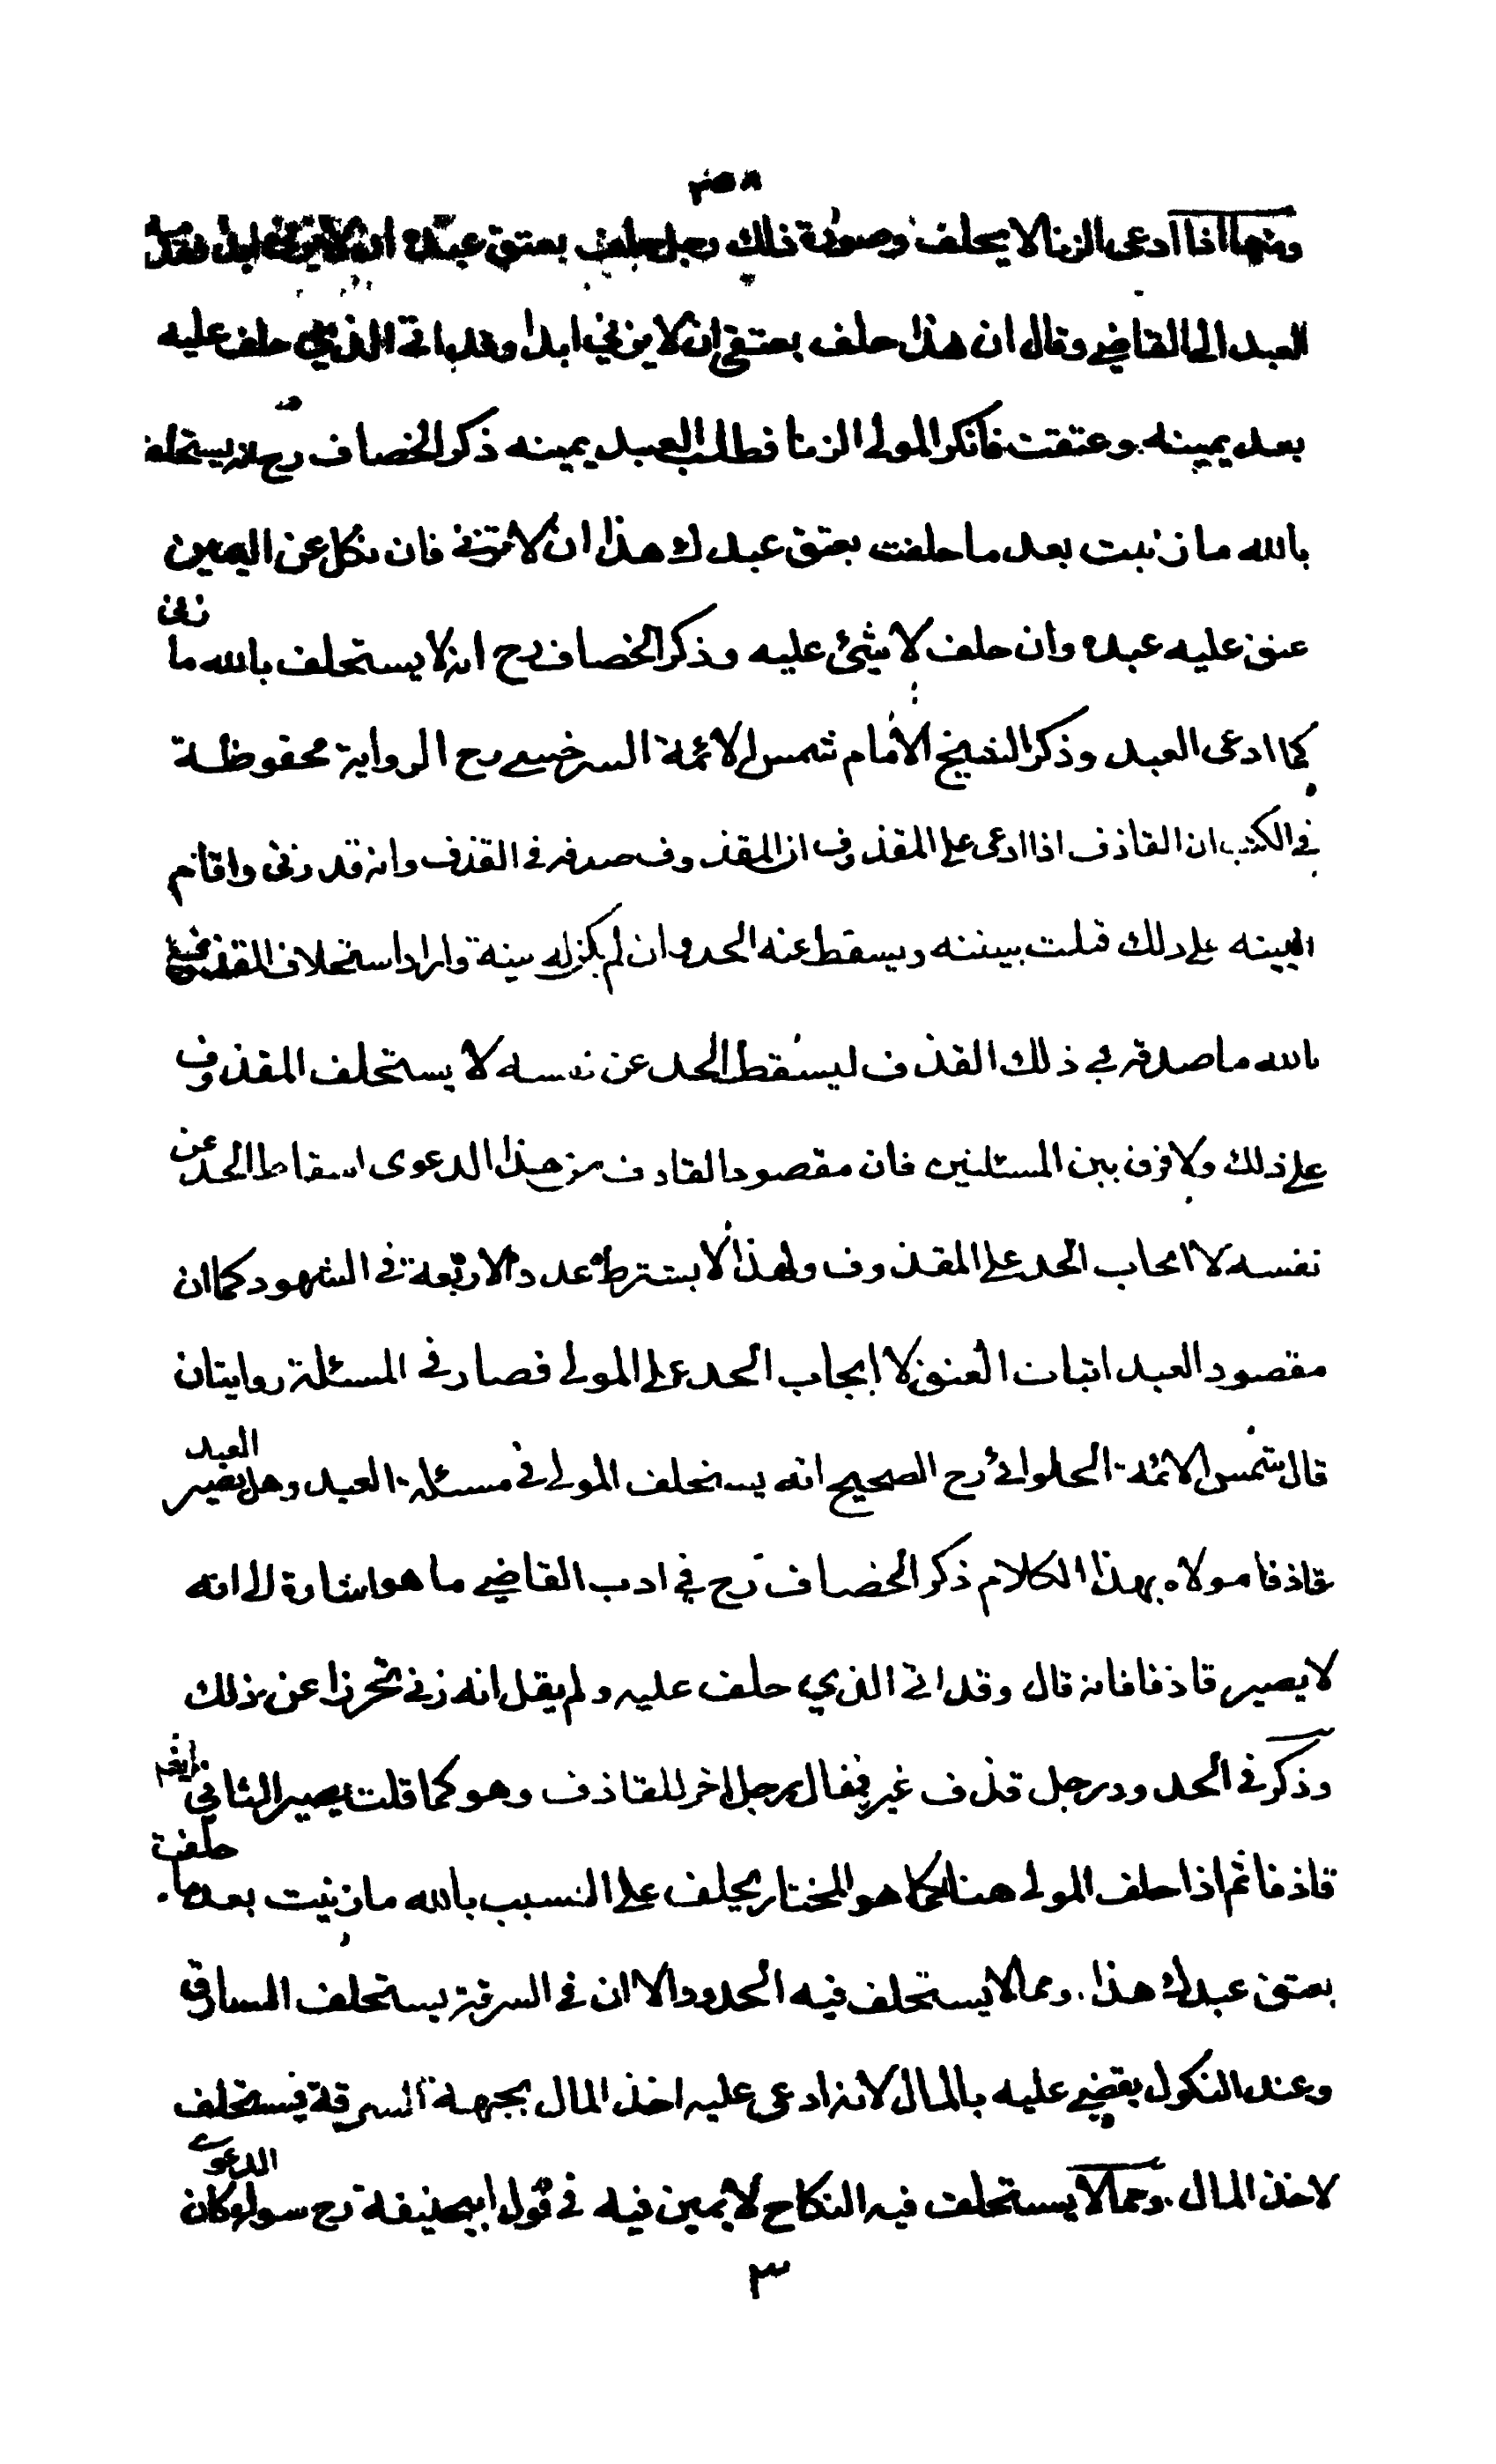 ومنها اذا ادعى الزنا لا يحلف وصورة ذلك رجل حلف بعتق عبده ان لا يزني ابدا فقدم
العبد الى القاضي وقال ان هذا حلف بعتقي ان لا يزني ابدا وقد اتى الذي حلف عليه
بعد يمينه وعتقت فانكر المولى الزنا فطلب العبد يمينه ذكر الخصاف رح انه يستحلف
بالله ما زنيت بعد ما حلفت بعتق عبدك هذا ان لا تزني فان نكل عن اليمين
عتق عليه عبده وان حلف لا شئ عليه وذكر الخصاف رح انه لا يستحلف بالله ما زنى
كما ادعى العبد وذكر الشيخ الامام شمس الائمة السرخسي رح الرواية محفوظة
في الكتب ان القاذف اذا ادعى على المقذوف ان المقذوف صدقه في القذف وانه قد زنى واقام
البينه على ذلك قبلت بينته ويسقط عنه الحد وان لم يكن له بينة واراد استحلاف المقذوف
بالله ما صدقه في ذلك القذف ليسقط الحد عن نفسه لا يستحلف المقذوف
على ذلك ولا فرق بين المسئلتين فان مقصود القاذف من هذا الدعوى اسقاط الحد عن
نفسه لا ايجاب الحد على المقذوف ولهذا لا يشترط عدد الاربعة في الشهود كما ان
مقصود العبد اثبات العتق لا ايجاب الحد على المولى فصار في المسئلة روايتان
قال شمس الائمة الحلوائي رح الصحيح انه يستحلف المولى في مسئلة العبد وهل يصير العبد
قاذفا مولاه بهذا الكلام ذكر الخصاف رح في ادب القاضي ما هو اشارة الى انه
لا يصير قاذفا فانه قال وقد اتى الذي حلف عليه ولم يقل انه زنى تحرزا عن ذلك
وذكر في الحدود رجل قذف غيره فقال رجل اخر للقاذف وهو كما قلت يصير الثاني ايضا
قاذفا ثم اذا حلف المولى هنا كما هو المختار يحلف على السبب بالله ما زنيت بعد ما حلفت
بعتق عبدك هذا. ومما لا يستحلف فيه الحدود الا ان في السرقة يستحلف السارق
وعند النكول يقضي عليه بالمال لانه ادعى عليه اخذ المال بجهة السرقة فيستحلف
لاخذ المال. ومما لا يستحلف فيه النكاح لا يمين فيه في قول ابيحنيفة رح سواء كان الدعوى
٣